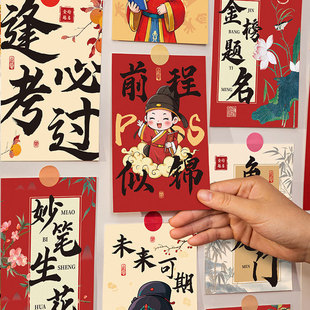 逢考
必过
前程
PASS
似锦
金榜
题名
BANG
TI
MING
妙笔
生花
MIAO
BI
SHENG
HUA
未来可期
门
MEN